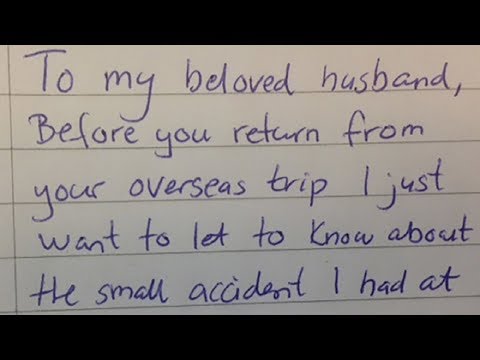 To my beloved husband,
Before you return from
your overseas trip I just
want to let to know about
the small accident I had at